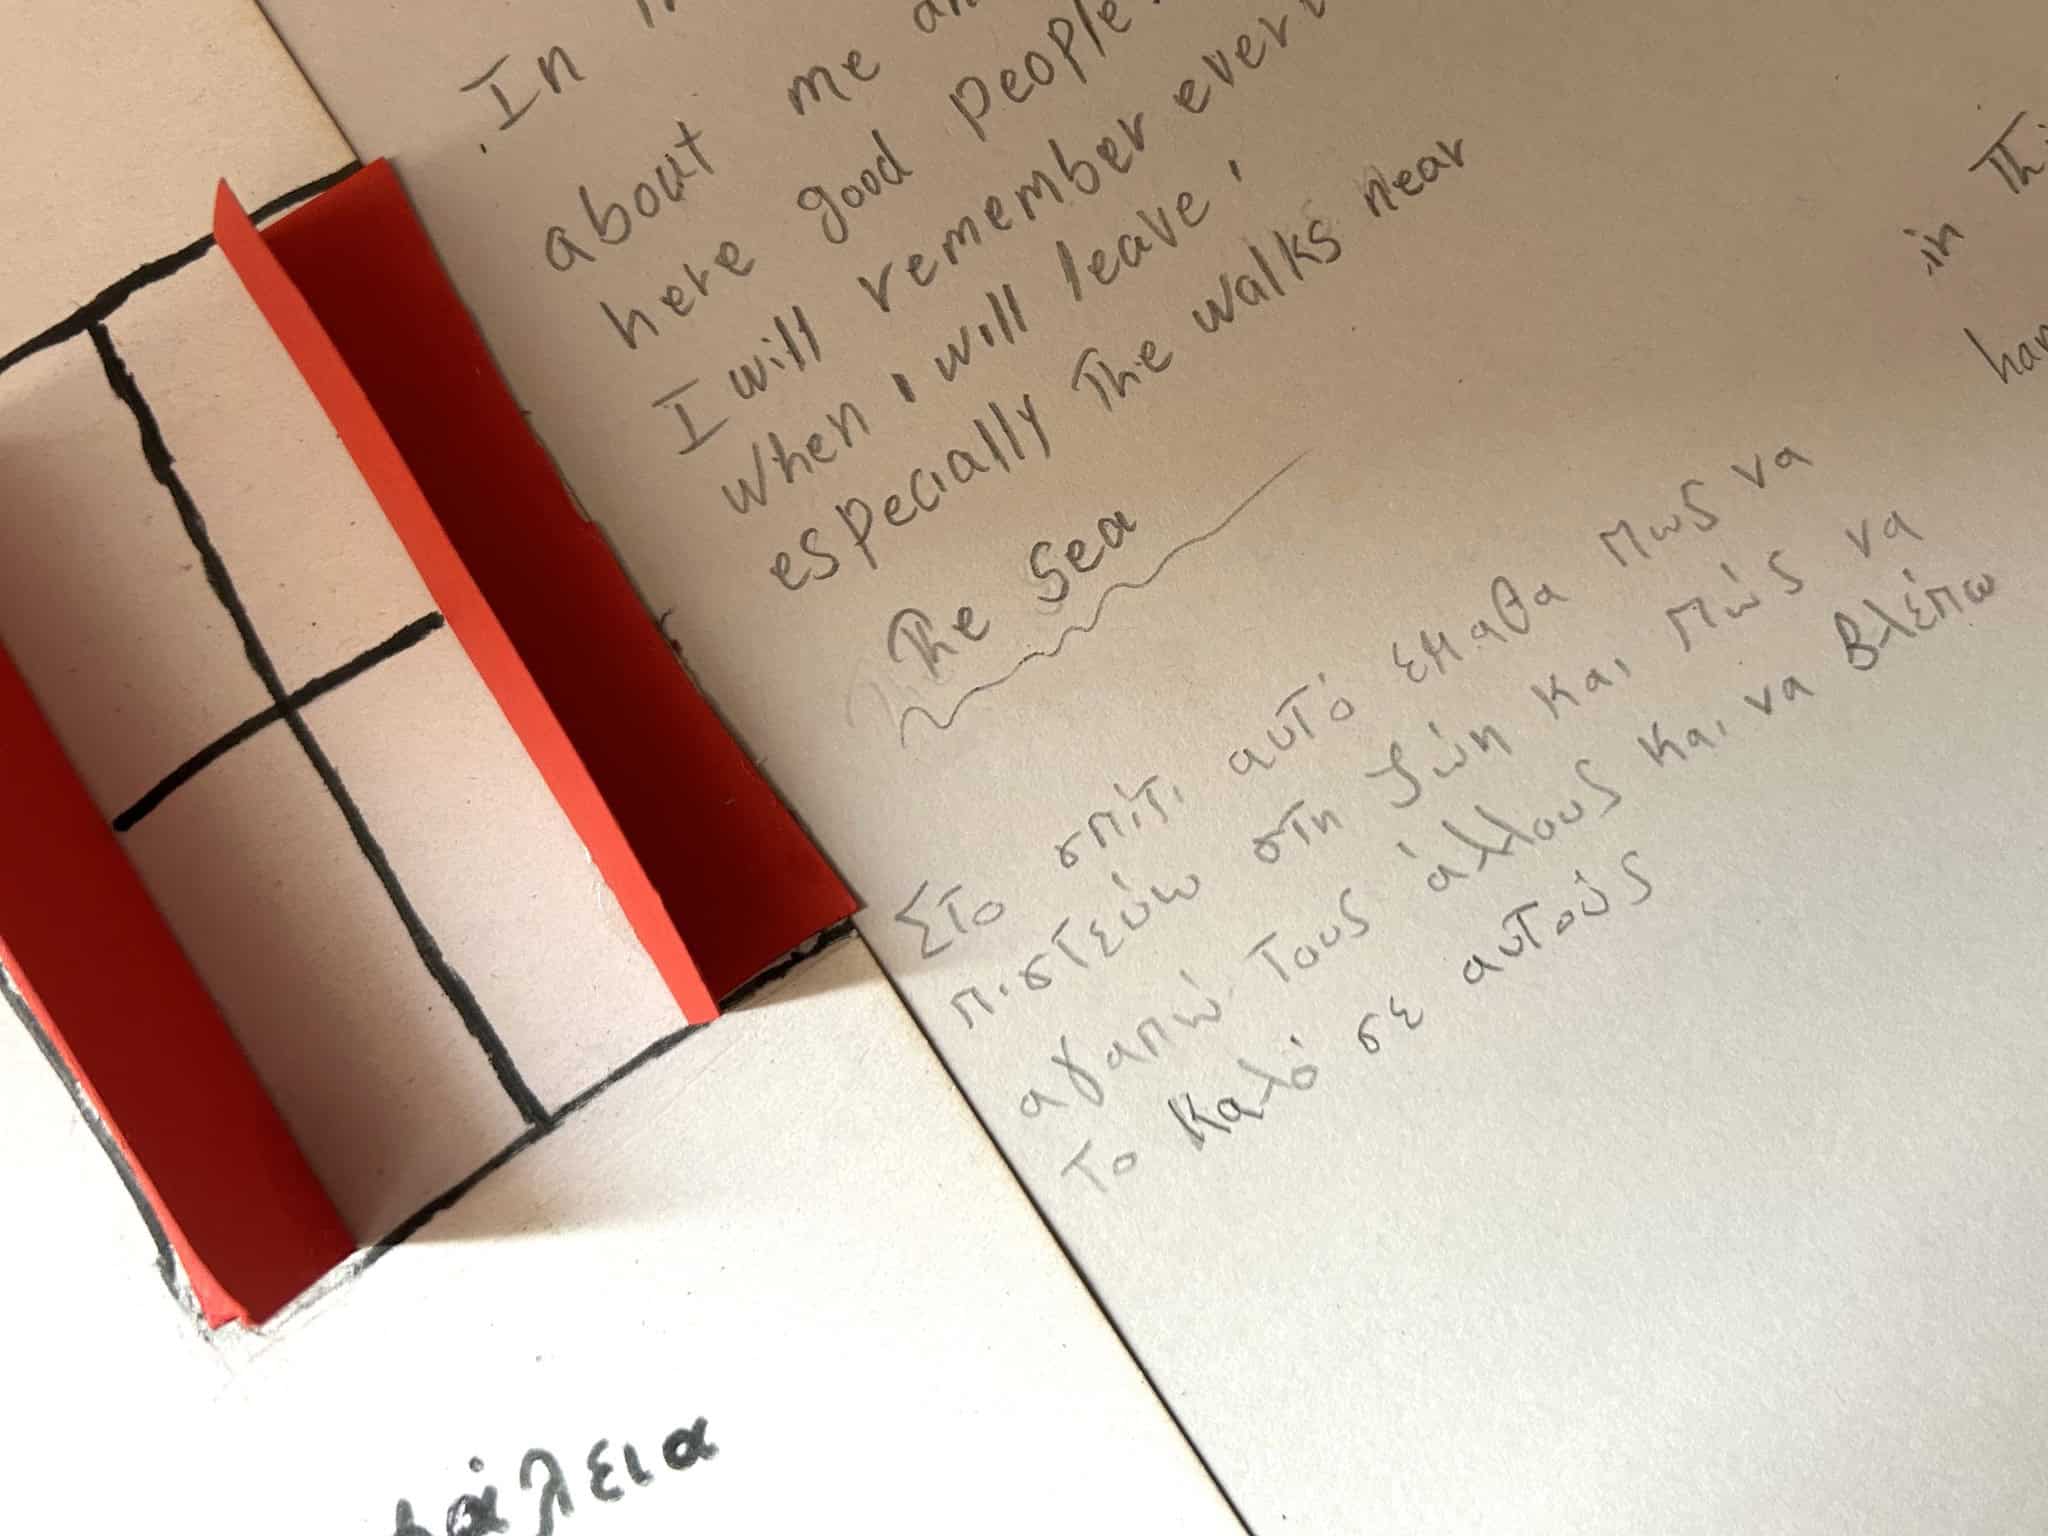 In
about me
here good people
I will remember
when I will leave!
especially The walks near
The Sea
in
Στο σπίτι αυτό έμαθα πως να
πιστεύω στη ζώη και πώς να
αγαπώ τους άλλους και να βλέπω
το καλό σε αυτούς